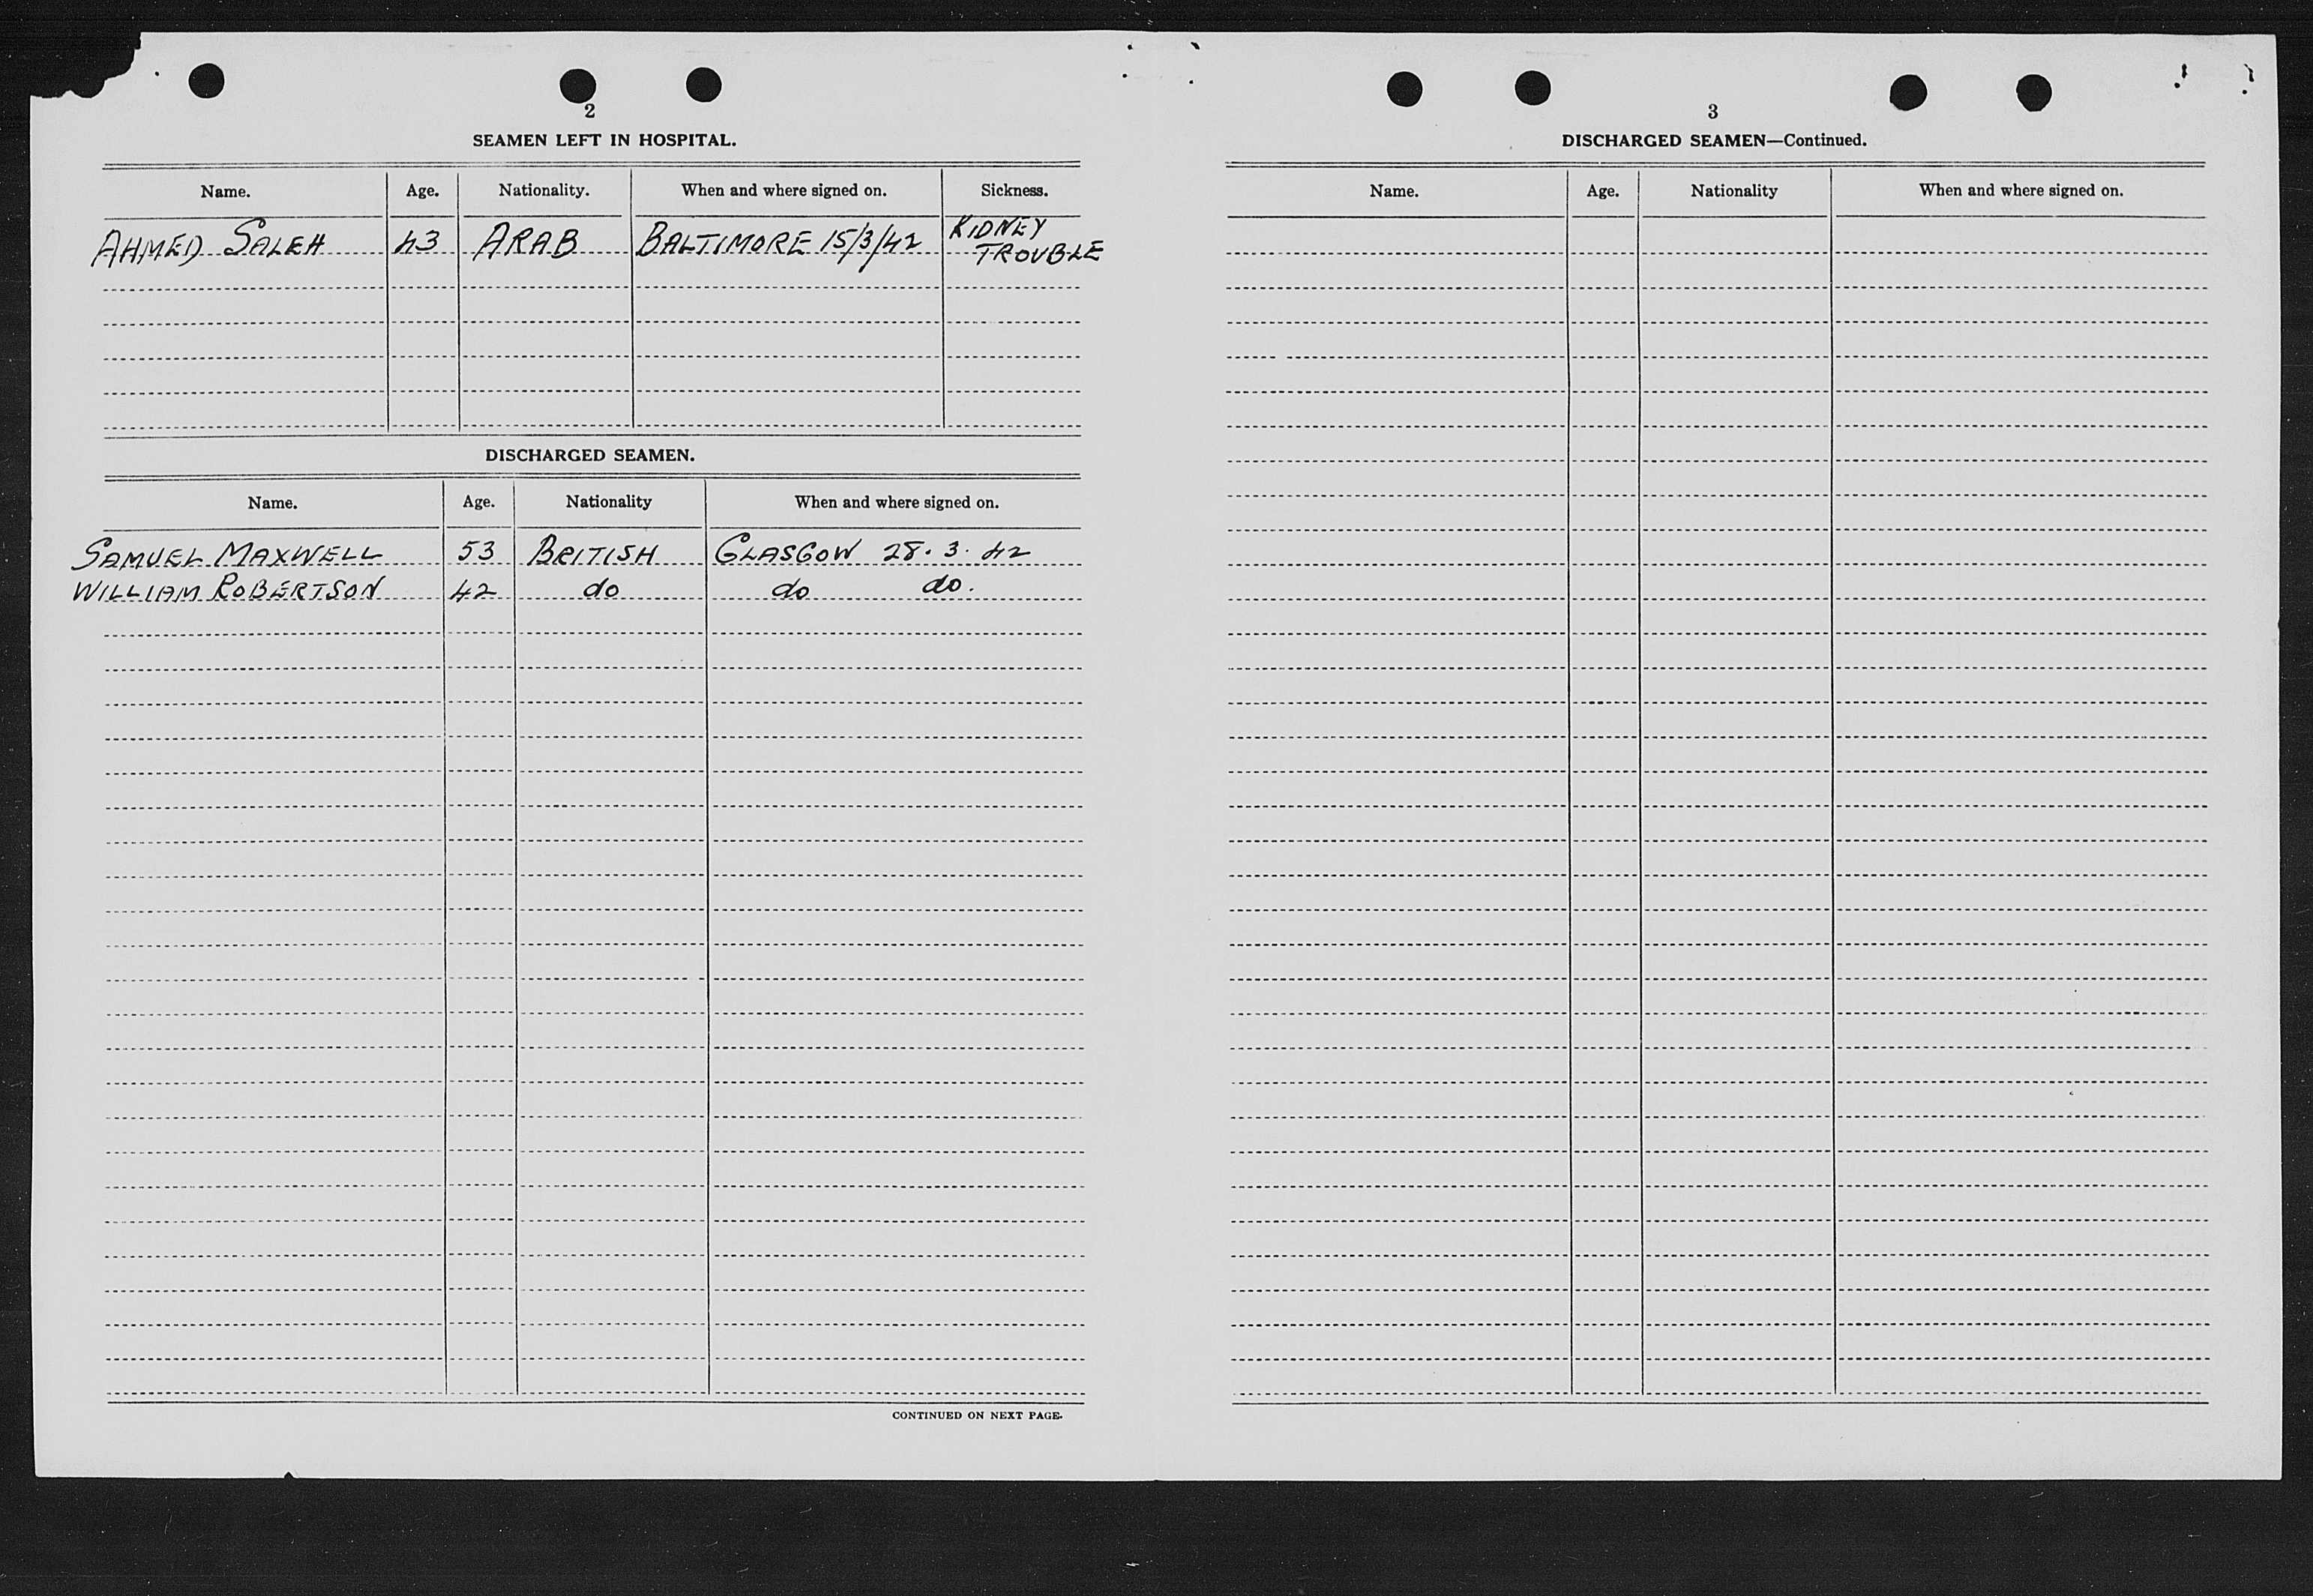 2
SEAMEN LEFT IN HOSPITAL.
Name. Age. Nationality. When and where signed on. Sickness.
AHMED SALEH 43 ARAB BALTIMORE 15/3/42 KIDNEY
TROUBLE
DISCHARGED SEAMEN.
Name. Age. Nationality When and where signed on.
SAMUEL MAXWELL 53 BRITISH GLASGOW 28. 3. 42
WILLIAM ROBERTSON 42 do do do.
CONTINUED ON NEXT PAGE.
3
DISCHARGED SEAMEN—Continued.
Name. Age. Nationality When and where signed on.